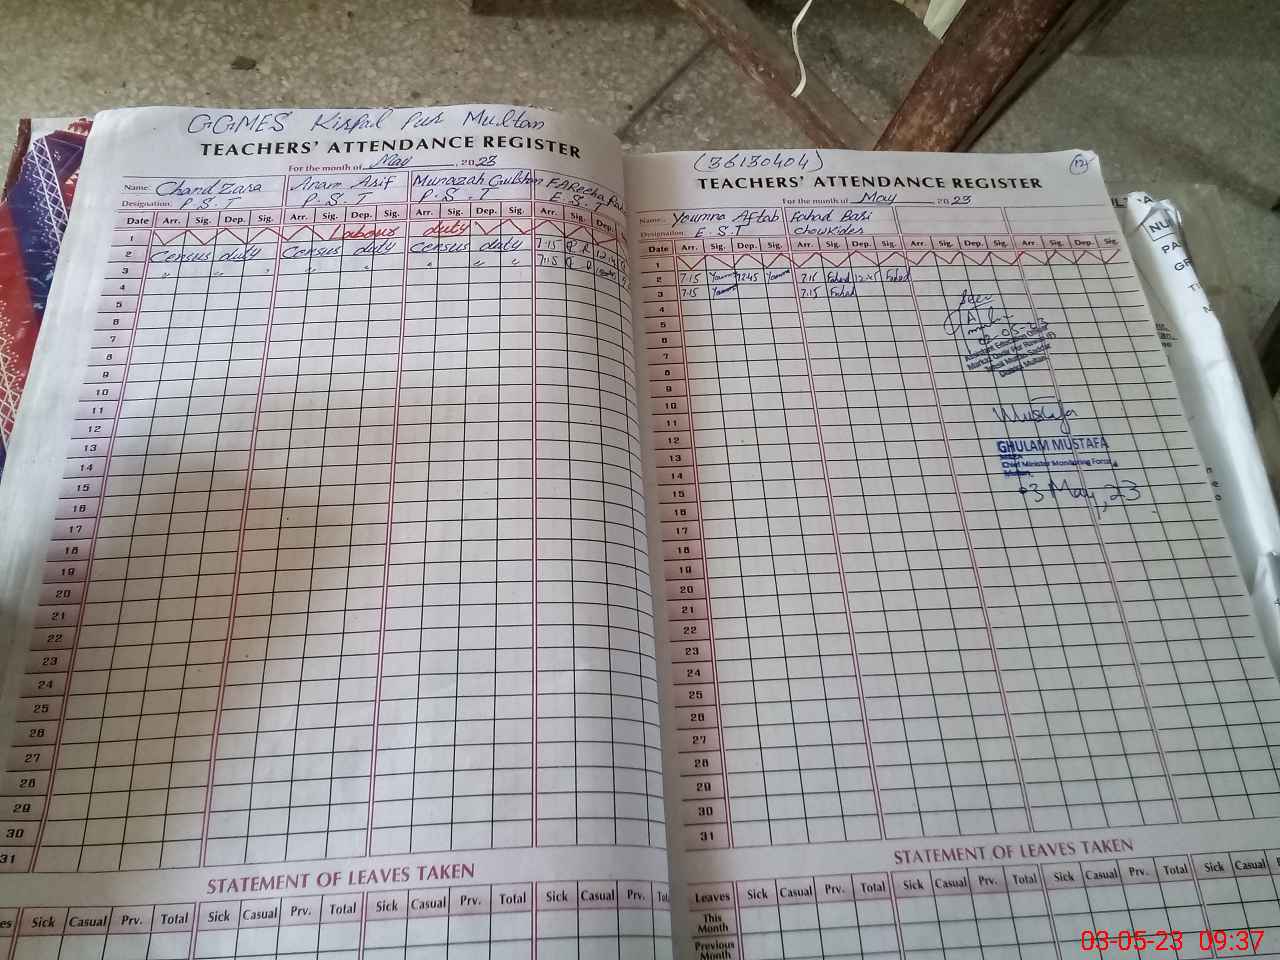 GGMES Kirpal Pur Multan
TEACHERS' ATTENDANCE REGISTER
For the month of May, 2023
Name. Chand Zara Anam Asif Munazah Gulshan FAReeha
Designation. P.S.T P.S.T P.S.T E.S.T
Date Arr. Sig. Dep. Sig. Arr. Sig. Dep. Sig. Arr. Sig. Dep. Sig. Arr. Sig. Dep.
1 Labour duty
2 Census duty Census duty Census duty 7:15
3 " " " " " " " 7:15
4
5
6
7
8
9
10
11
12
13
14
15
16
17
18
19
20
21
22
23
24
25
26
27
28
29
30
31
STATEMENT OF LEAVES TAKEN
Sick Casual Prv. Total Sick Casual Prv. Total Sick Casual Prv. Total Sick Casual Prv.
(36130404) 12
TEACHERS' ATTENDANCE REGISTER
For the month of May 2023
Name. Youmna Aftab Fahad Bari
Designation. E.S.T Chowkider
Date Arr. Sig. Dep. Sig. Arr. Sig. Dep. Sig. Arr. Sig. Dep. Sig. Arr. Sig. Dep. Sig.
1
2 7:15 Youmna 12:45 Youmna 7:15 Fahad 12:45 Fahad
3 7:15 Youmna 7:15 Fahad
4
5
6
7
8
9
10
11
12
13
14
15
16
17
18
19
20
21
22
23
24
25
26
27
28
29
30
31
Seen
02-05-23
Assistant Education Officer
Mustafa
GHULAM MUSTAFA
Chief Minister Monitoring Force
Multan
03 May, 23
STATEMENT OF LEAVES TAKEN
Leaves Sick Casual Prv. Total Sick Casual Prv. Total Sick Casual Prv. Total Sick Casual
This Month
Previous Month
03-05-23 09:37